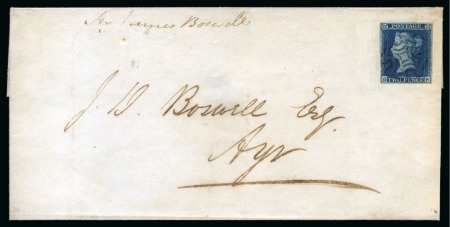 James Boswell
POSTAGE
TWO PENCE
J. D. Boswell Esq.
Ayr